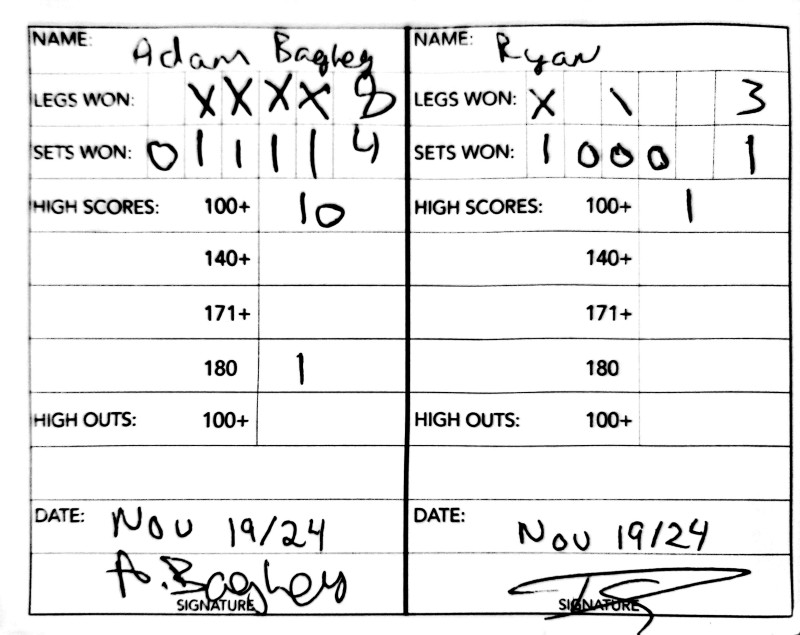 NAME: Adam Baghey
LEGS WON: X X X X 8
SETS WON: 0 1 1 1 1 4
HIGH SCORES: 100+ 10
140+
171+
180 1
HIGH OUTS: 100+
DATE: Nov 19/24
A. Baghey
SIGNATURE
NAME: Ryan
LEGS WON: X \ 3
SETS WON: 1 0 0 0 1
HIGH SCORES: 100+ 1
140+
171+
180
HIGH OUTS: 100+
DATE: Nov 19/24
SIGNATURE